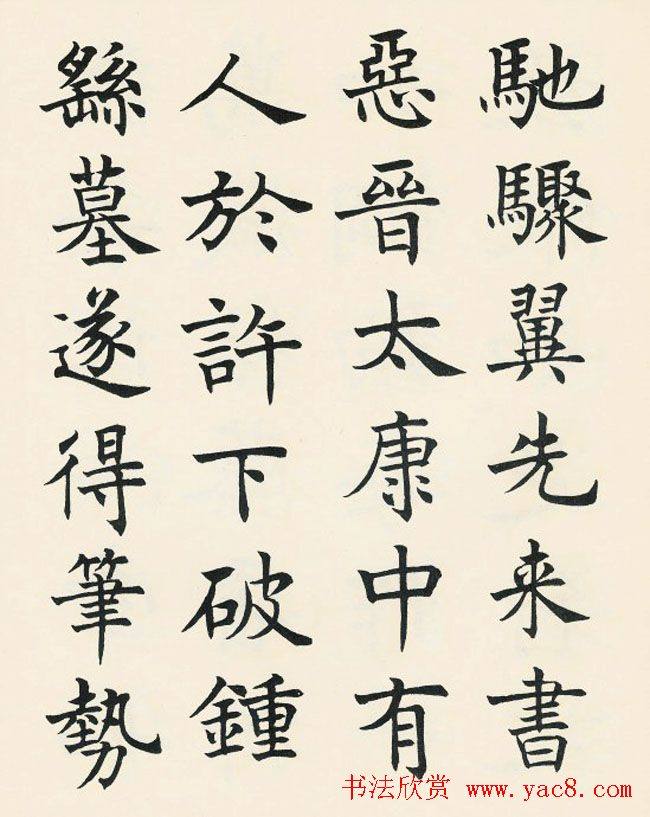 馳驟翼先来書
惡晉太康中有
人於許下破鍾
繇墓遂得筆勢
书法欣赏 www.yac8.com